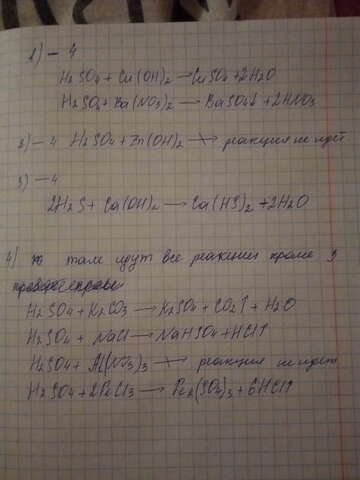 1) - 4
H₂SO₄ + Cu(OH)₂ → CuSO₄ + 2H₂O
H₂SO₄ + Ba(NO₃)₂ → BaSO₄↓ + 2HNO₃
2) - 4 H₂SO₄ + Zn(OH)₂ ↛ реакция не идёт
3) - 4
2H₂S + Ca(OH)₂ → Ca(HS)₂ + 2H₂O
4) там идут все реакции кроме 3
H₂SO₄ + K₂CO₃ → K₂SO₄ + CO₂↑ + H₂O
H₂SO₄ + NaCl → NaHSO₄ + HCl↑
H₂SO₄ + Al(NO₃)₃ ↛ реакция не идёт
H₂SO₄ + 2FeCl₃ → Fe₂(SO₄)₃ + 6HCl↑